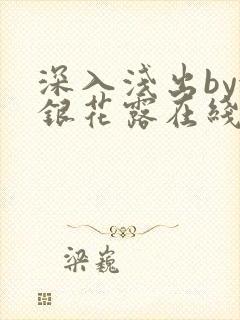 深入浅出by
銀花露在綫
梁巍